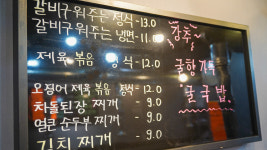 갈비구워주는 정식 -13.0
갈비구워주는 냉면 -11.0
제육 볶음 정식 -12.0
오징어 제육 볶음 정식 -12.0
차돌된장 찌개 - 9.0
얼큰 순두부 찌개 - 9.0
김치 찌개 - 9.0
강추
굴국밥